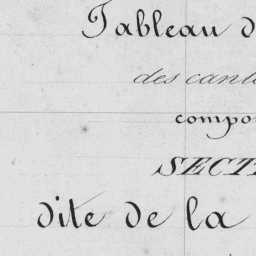 Tableau d
des cant
compo
SECT
dite de la